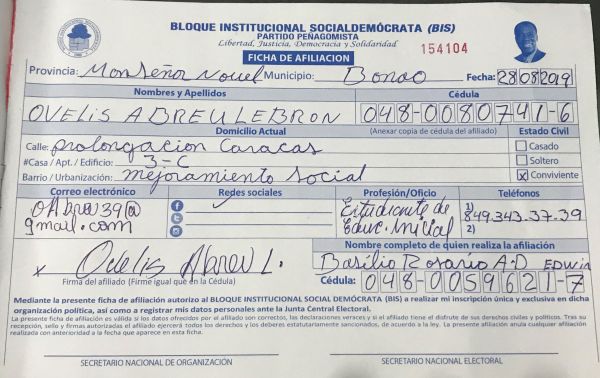 BLOQUE INSTITUCIONAL SOCIALDEMÓCRATA (BIS)
PARTIDO PEÑAGOMISTA
Libertad, Justicia, Democracia y Solidaridad
154104
FICHA DE AFILIACION
Provincia: Monseñor Nouel Municipio: Bonao Fecha: 28/08/2019
Nombres y Apellidos Cédula
OVELIS ABREU LEBRON 048-0080741-6
Domicilio Actual (Anexar copia de cédula del afiliado) Estado Civil
Calle: prolongacion Caracas Casado
#Casa / Apt. / Edificio: 3-C Soltero
Barrio / Urbanización: mejoramiento Social x Conviviente
Correo electrónico Redes sociales Profesión/Oficio Teléfonos
OAbreu39@ Estudiante de 1)
gmail.com Educ. Inicial 849.343.37.39
2)
Nombre completo de quien realiza la afiliación
x Odelis Abreu L. Basilio Rosario A.D EDWIN
Firma del afiliado (Firme igual que en la Cédula) Cédula: 048-0059621-7
Mediante la presente ficha de afiliación autorizo al BLOQUE INSTITUCIONAL SOCIAL DEMÓCRATA (BIS) a realizar mi inscripción única y exclusiva en dicha
organización política, así como a registrar mis datos personales ante la Junta Central Electoral.
La presente ficha de afiliación es válida si los datos ofrecidos por el afiliado son correctos, las declaraciones veraces y si el afiliado tiene el disfrute de sus derechos civiles y políticos. Tras su
recepción, sello y firmas autorizadas el afiliado ejercerá todos los derechos y los deberes estatutariamente sancionados, de acuerdo a la ley. La presente afiliación anula cualquier afiliación
realizada con anterioridad a la fecha que aparece en esta ficha.
SECRETARIO NACIONAL DE ORGANIZACIÓN SECRETARIO NACIONAL ELECTORAL